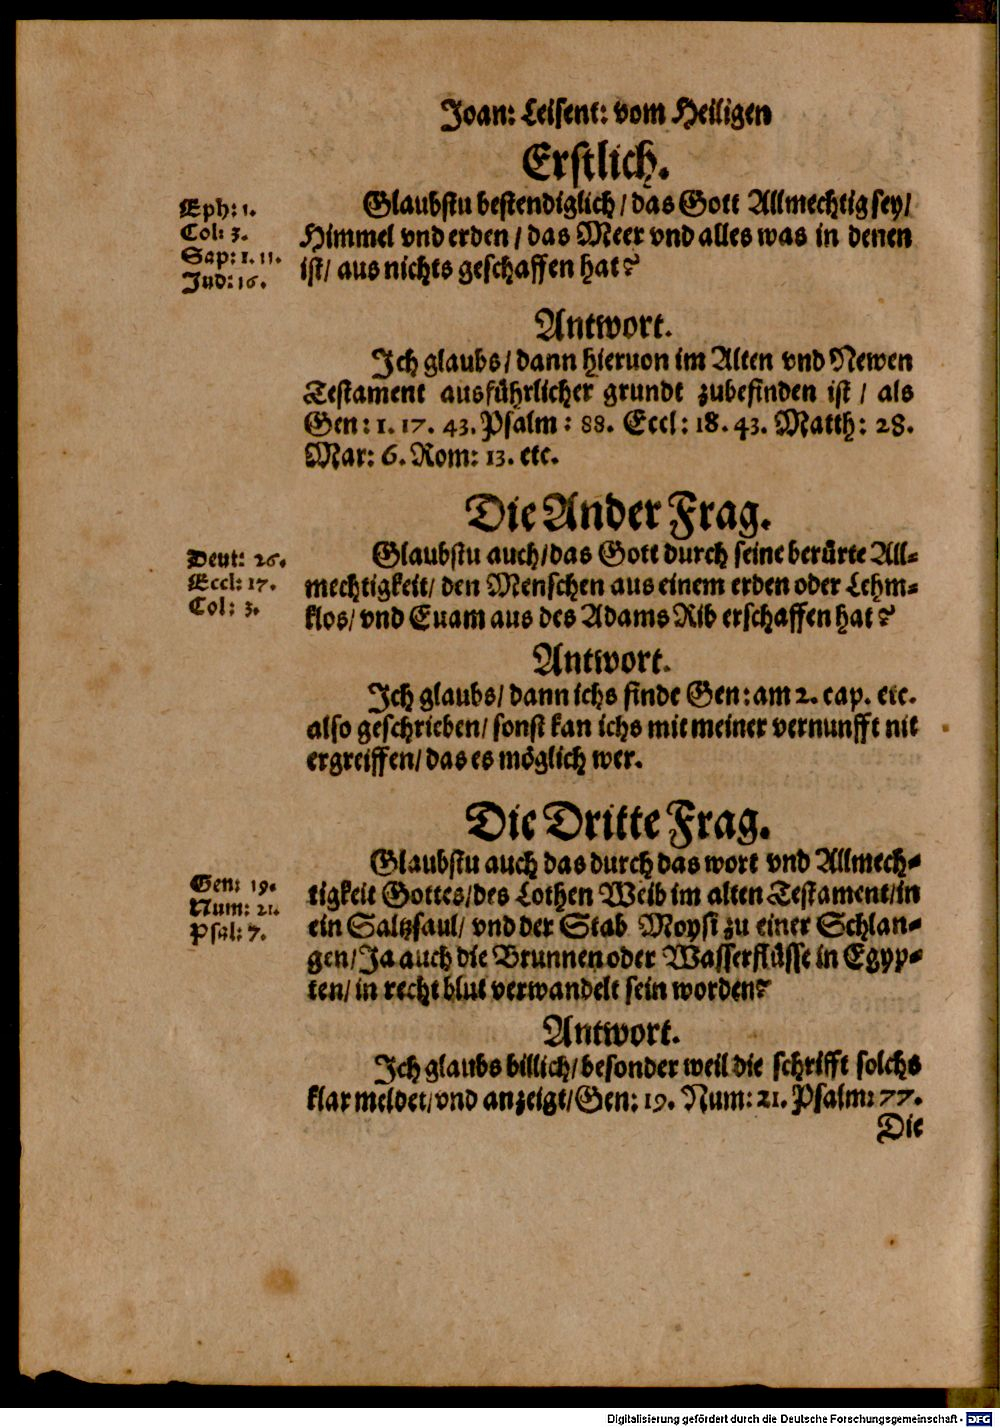 Joan: Leisent: vom Heiligen
Erstlich.
Eph: 1.
Col: 3.
Sap: 1. 11.
Jud: 16.
Glaubstu bestendiglich / das Gott Allmechtig sey /
Himmel vnd erden / das Meer vnd alles was in denen
ist / aus nichts geschaffen hat?
Antwort.
Ich glaubs / dann hieruon im Alten vnd Newen
Testament ausführlicher grundt zubefinden ist / als
Gen: 1. 17. 43. Psalm: 88. Eccl: 18. 43. Matth: 28.
Mar: 6. Rom: 13. etc.
Die Ander Frag.
Deut: 26.
Eccl: 17.
Col: 3.
Glaubstu auch / das Gott durch seine berürte All-
mechtigkeit / den Menschen aus einem erden oder Lehm-
klos / vnd Euam aus des Adams Rib erschaffen hat?
Antwort.
Ich glaubs / dann ichs finde Gen: am 2. cap. etc.
also geschrieben / sonst kan ichs mit meiner vernunfft nit
ergreiffen / das es möglich wer.
Die Dritte Frag.
Gen: 19.
Num: 21.
Psal: 7.
Glaubstu auch das durch das wort vnd Allmech-
tigkeit Gottes / des Lothen Weib im alten Testament / in
ein Saltzsaul / vnd der Stab Moysi zu einer Schlan-
gen / Ja auch die Brunnen oder Wasserflüsse in Egyp-
ten / in recht blut verwandelt sein worden?
Antwort.
Ich glaubs billich / besonder weil die schrifft solchs
klar meldet / vnd anzeigt / Gen: 19. Num: 21. Psalm: 77.
Die
Digitalisierung gefördert durch die Deutsche Forschungsgemeinschaft - DFG